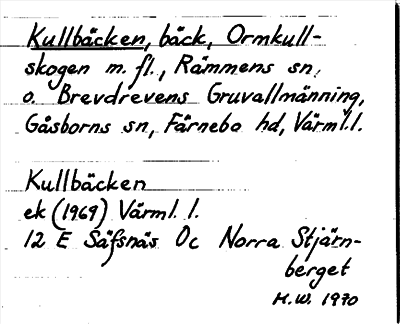 Kullbäcken, bäck, Ormkull-
skogen m. fl., Rämmens sn,
o. Brevdrevens Gruvallmänning,
Gåsborns sn, Färnebo hd, Värml.l.
Kullbäcken
ek (1969) Värml. l.
12 E Säfsnäs Oc Norra Stjärn-
berget
H.W. 1970